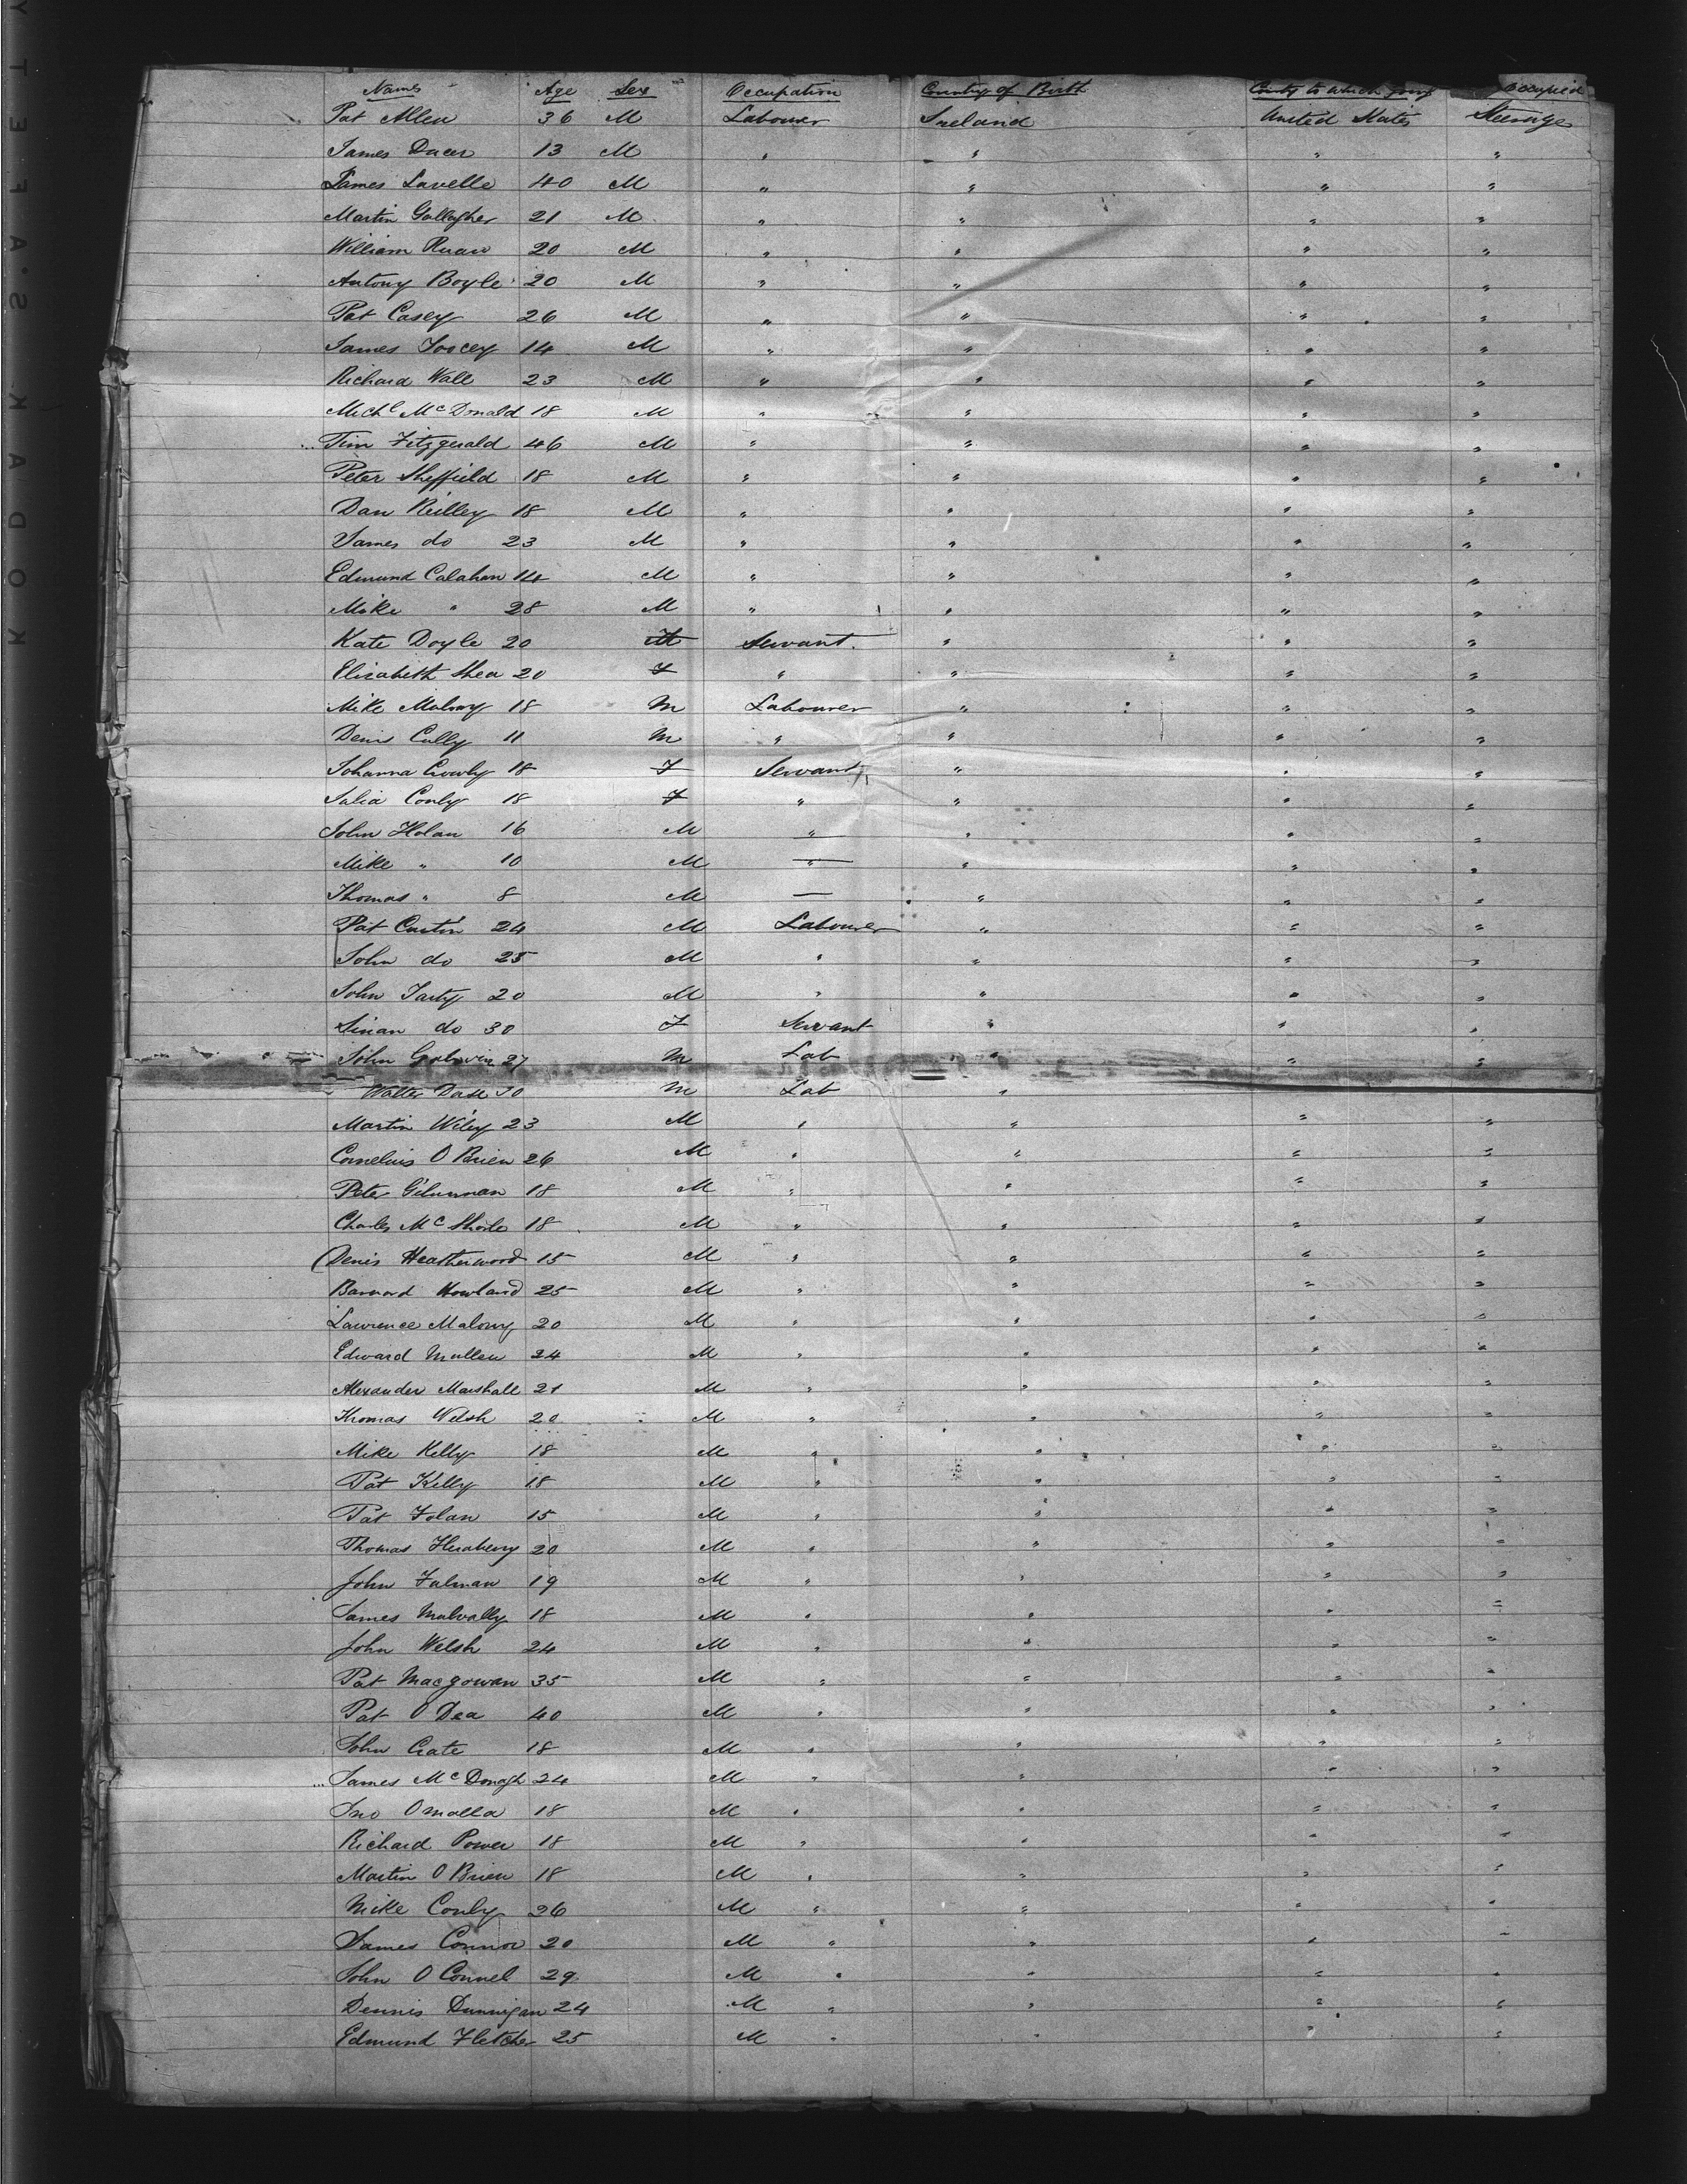 Names Age Sex Occupation Country of Birth County to which going occupied
Pat Allen 36 M Labourer Ireland United States Steerage
James Dacer 13 M " " " "
James Lavelle 40 M " " " "
Martin Gallagher 21 M " " " "
William Ruan 20 M " " " "
Antony Boyle 20 M " " " "
Pat Casey 26 M " " " "
James Toocey 14 M " " " "
Richard Wall 23 M " " " "
Michl McDonald 18 M " " " "
Tim Fitzgerald 46 M " " " "
Peter Sheffield 18 M " " " "
Dan Reilley 18 M " " " "
James do 23 M " " " "
Edmund Calahan 14 M " " " "
Mike " 28 M " " " "
Kate Doyle 20 Servant. " " "
Elizabeth Shea 20 F " " " "
Mike Malony 18 M Labourer " " "
Denis Cully 11 M " " " "
Johanna Crowly 18 F Servant " " "
Julia Conly 18 F " " " "
John Holan 16 M " " " "
Mike " 10 M " " " "
Thomas " 8 M — " " "
Pat Custin 24 M Labourer " " "
John do 25 M " " " "
John Farty 20 M " " " "
do 30 F Servant " " "
John Galwin 27 M Lab " " "
Walter Dase 30 M Lab "
Martin Wiley 23 M " " " "
Cornelius O Brien 26 M " " " "
Peter Gilunnan 18 M " " " "
Charles Mc 18 M " " " "
Denis Heatherwood 15 M " " " "
Barnard Howland 25 M " " " "
Lawrence Malony 20 M " " " "
Edward Mullen 24 M " " " "
Alexander Marshall 21 M " " " "
Thomas Welsh 20 M " " " "
Mike Kelly 18 M " " " "
Pat Kelly 18 M " " " "
Pat Folan 15 M " " " "
Thomas 20 M " " " "
John Falman 19 M " " " "
James Mulvally 18 M " " " "
John Welsh 24 M " " " "
Pat Macgowan 35 M " " " "
Pat O Dea 40 M " " " "
John Crate 18 M " " " "
James McDonagh 24 M " " " "
Jno Omalla 18 M " " " "
Richard Power 18 M " " " "
Martin O Brien 18 M " " " "
Mike Conly 26 M " " " "
James Connor 20 M " " " "
John O Connel 29 M " " " "
Dennis Dunnigan 24 M " " " "
Edmund Fletcher 25 M " " " "
KODAK·SAFETY